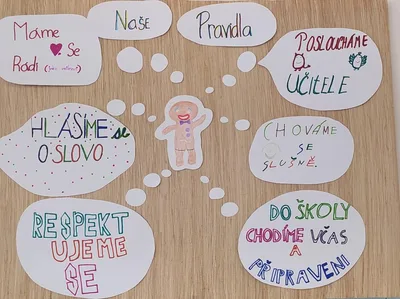 Naše
Pravidla
Máme
Se
Rádi
POSLOUCHÁME
UČITELE
HLÁSÍME se
O SLOVO
CHOVÁME
SE
SLUŠNĚ.
RESPEKT
UJEME
SE
DO ŠKOLY
CHODÍME VČAS
A
PŘIPRAVENI